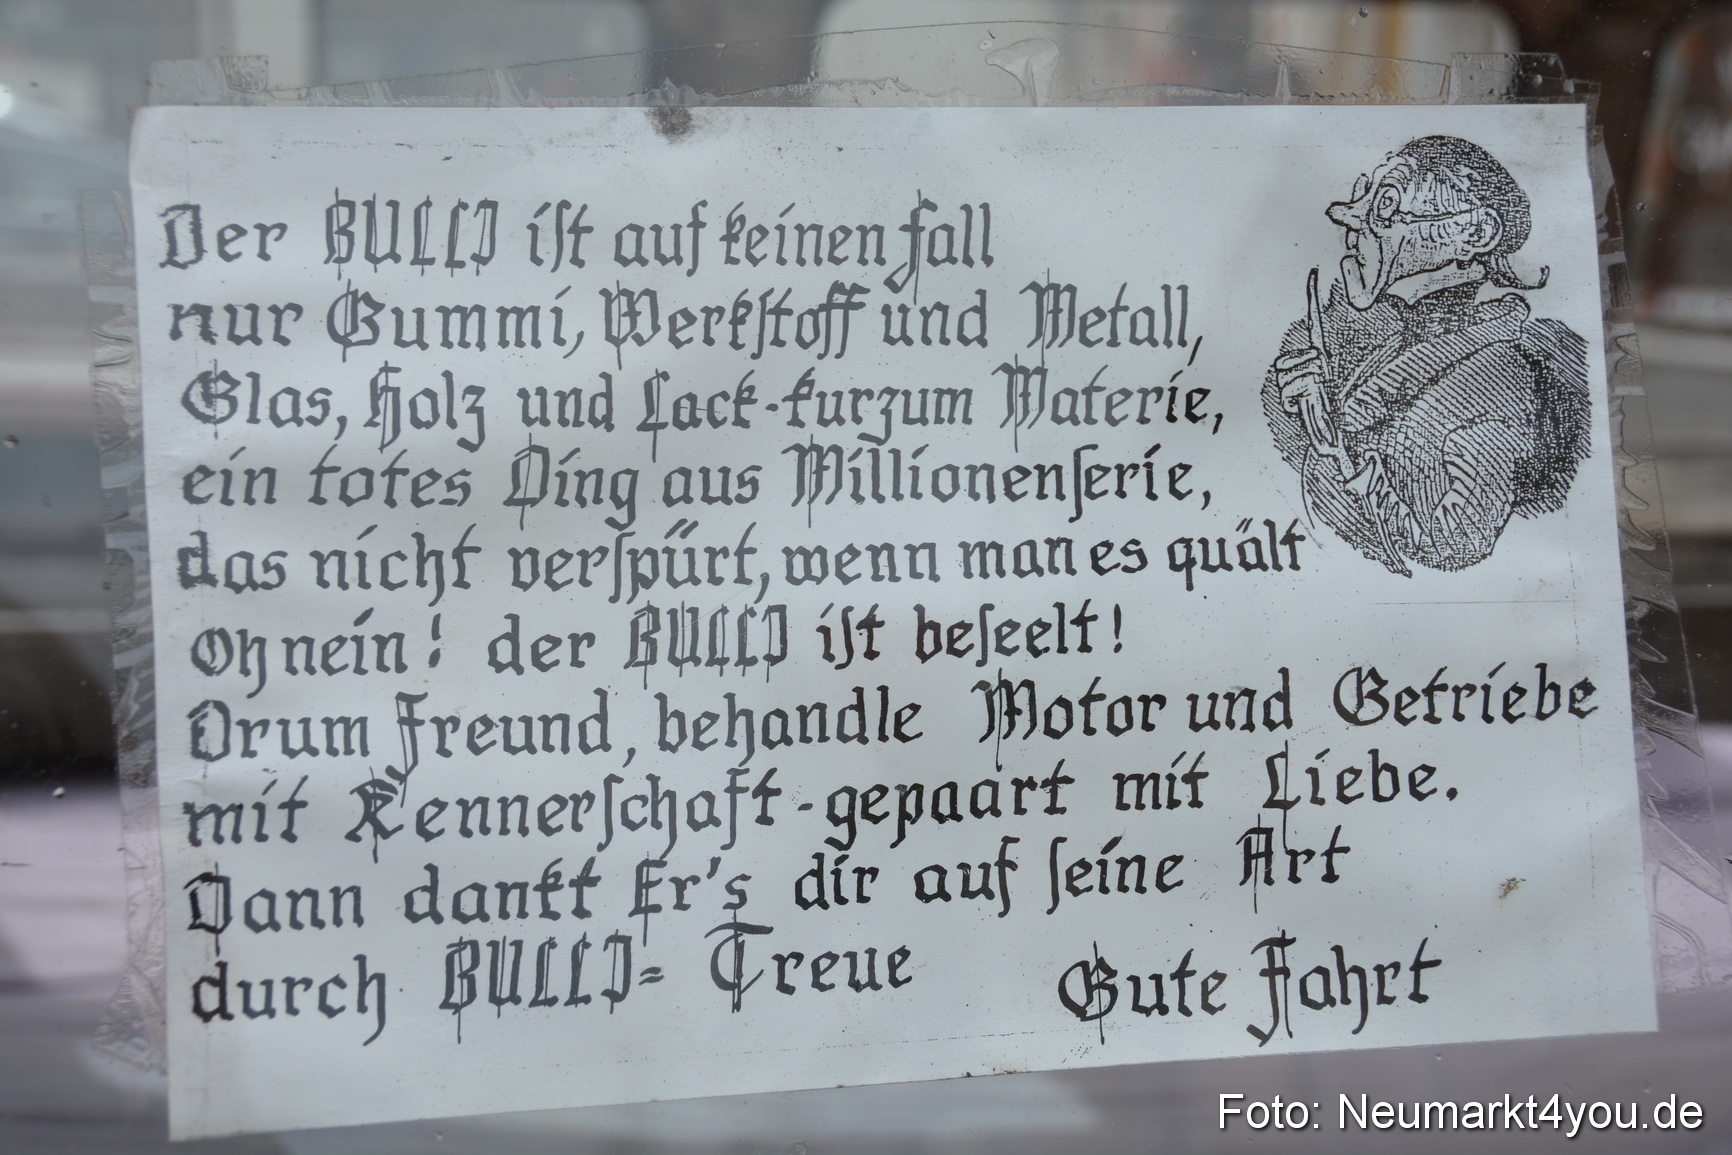 Der BULLI iſt auf keinen Fall
nur Gummi, Werkſtoff und Metall,
Glas, Holz und Lack - kurzum Materie,
ein totes Ding aus Millionenſerie,
das nicht verſpürt, wenn man es quält
Oh nein! der BULLI iſt beſeelt!
Drum Freund, behandle Motor und Getriebe
mit Kennerſchaft - gepaart mit Liebe.
Dann dankt Er's dir auf ſeine Art
durch BULLI= Treue Gute Fahrt
Foto: Neumarkt4you.de